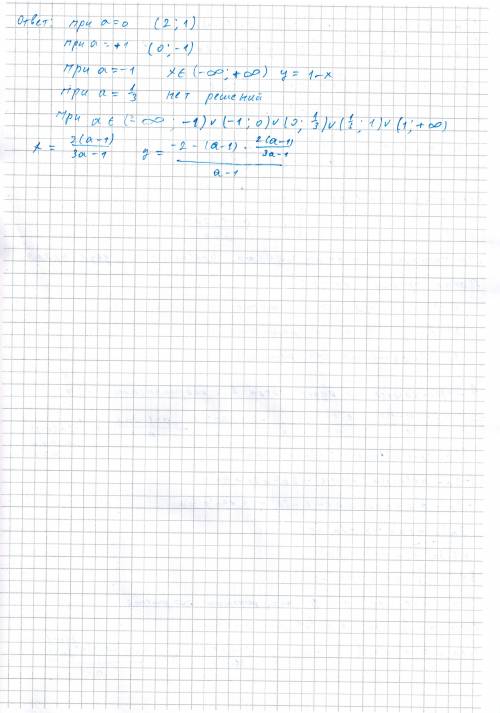 Ответ: при a=0 (2; 1)
при a=+1 (0; -1)
при a=-1 x∈(-∞; +∞) y=1-x
при a=1/3 нет решений
при a∈(-∞; -1)∨(-1; 0)∨(0; 1/3)∨(1/3; 1)∨(1; +∞)
x = 2(a-1)/3a-1 y = -2-(a-1)·2(a-1)/3a-1 / a-1